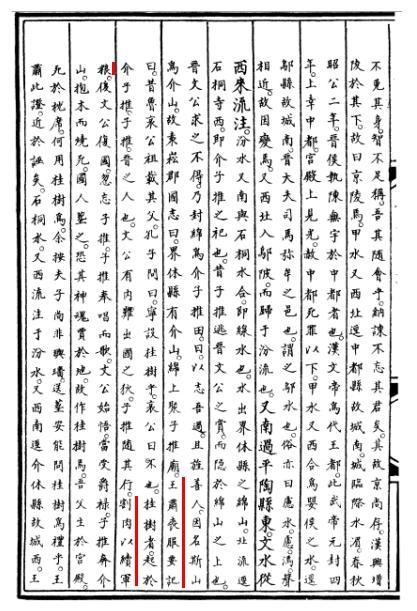 不免其身。智不足稱。吾其隨會乎。納諫不忘其君矣。其故京尚存。漢興增
陵於其下。故曰京陵焉。甲水又西北逕中都縣故城南。城臨際水湄。春秋
昭公二年。晉侯執陳無宇於中都者也。漢文帝為代王都此。武帝元封四
年。上幸中都宮。殿上見光。赦中都死罪以下。甲水又西合為嬰侯之水。逕
鄔縣故城南。晉大夫司馬彌牟之邑也。謂之鄔水也。俗亦曰慮水。慮鄔聲
相近。故因變焉。又西北入鄔陂。而歸于汾流也。又南過平陶縣東。文水從
西來流注。汾水又南與石桐水合。即緜水也。水出界休縣之緜山。北流逕
石桐寺西。即介子推之祠也。昔子推逃晉文公之賞。而隱於緜山之上也。
晉文公求之不得。乃封緜為介子推田。曰。以志吾過。且旌善人。因名斯山
為介山。故袁崧郡國志曰。界休縣有介山。緜上聚。子推廟。王肅喪服要記
曰。昔魯哀公祖載其父。孔子問曰。寧設桂樹乎。哀公曰。不也。桂樹者。起於
介子推。子推。晉之人也。文公有內難。出國之狄。子推隨其行。割肉以續軍
粮。後文公復國。忽忘子推。子推奉唱而歌。文公始悟。當受爵祿。子推奔介
山。抱木而燒死。國人葬之。恐其神魂賈於地。故作桂樹焉。吾父生於宮殿。
死於枕席。何用桂樹為。余按夫子尚非璵璠送葬。安能問桂樹為禮乎。王
肅此證近於誣矣。石桐水又西流注于汾水。又西南逕介休縣故城西。王